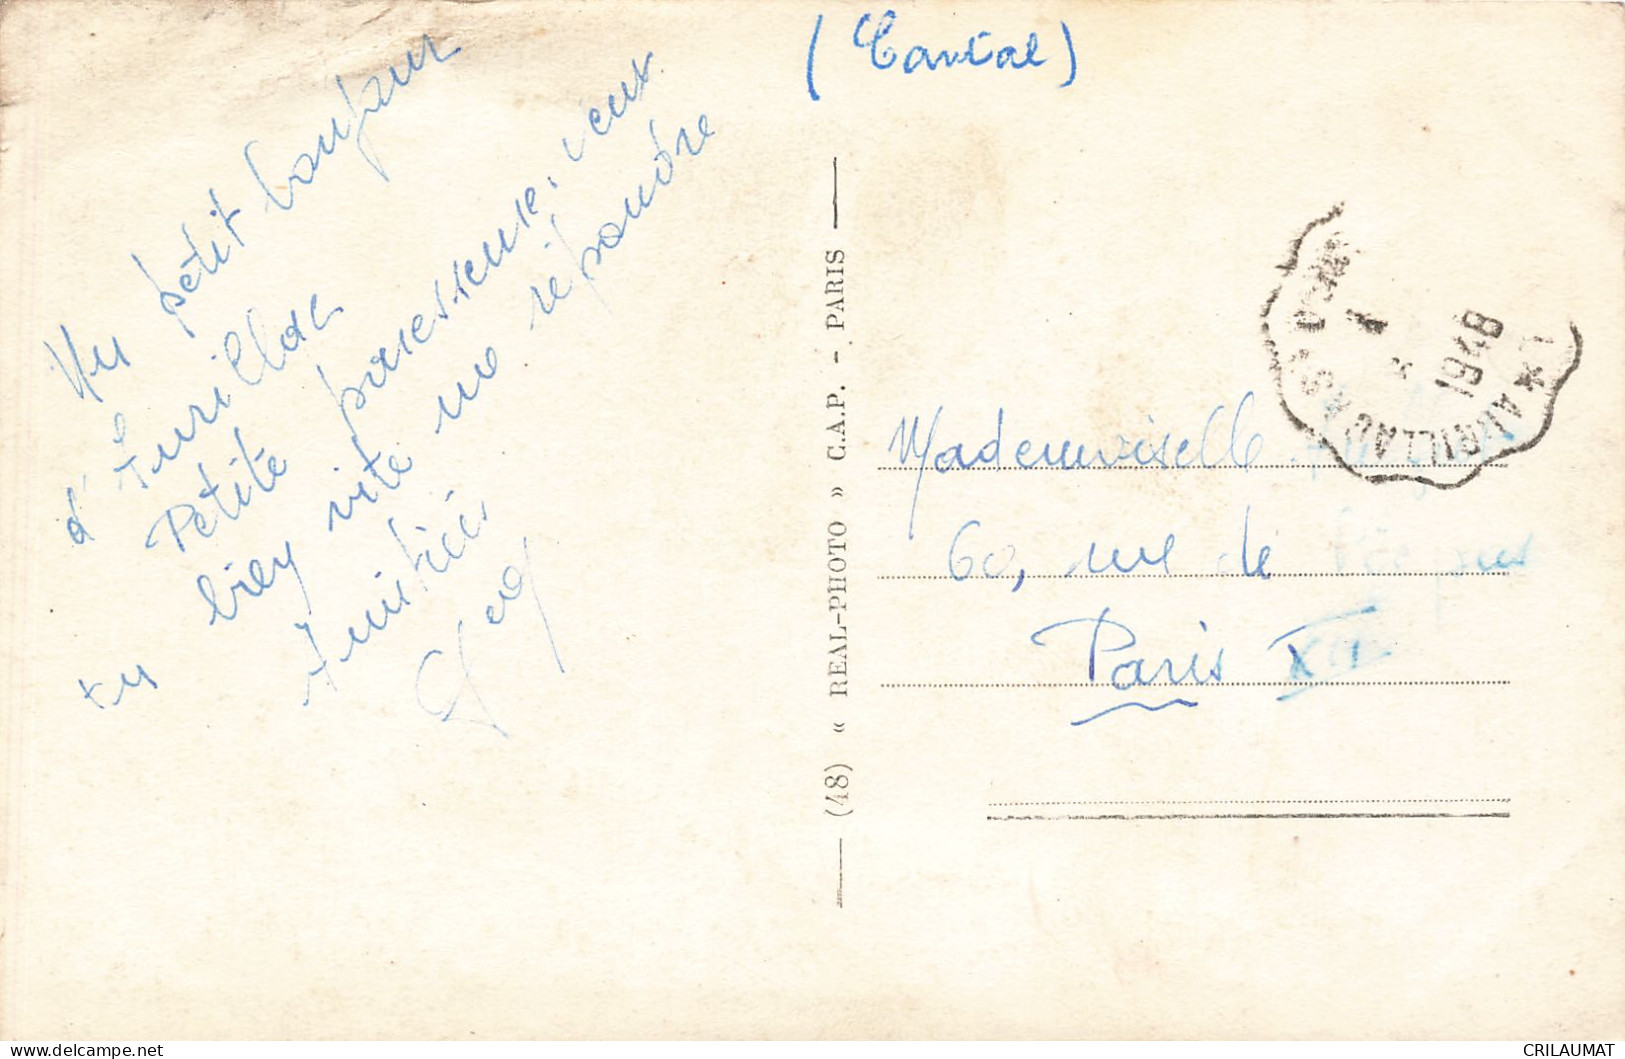 (Cantal)
Un petit bonjour
d'Aurillac
Petite paresseuse, veux
tu bien vite me répondre
Amitiés
Mademoiselle
60, rue de
Paris
(48) « REAL-PHOTO » C.A.P. - PARIS
AURILLAC
1948
delcampe.net
CRILAUMAT